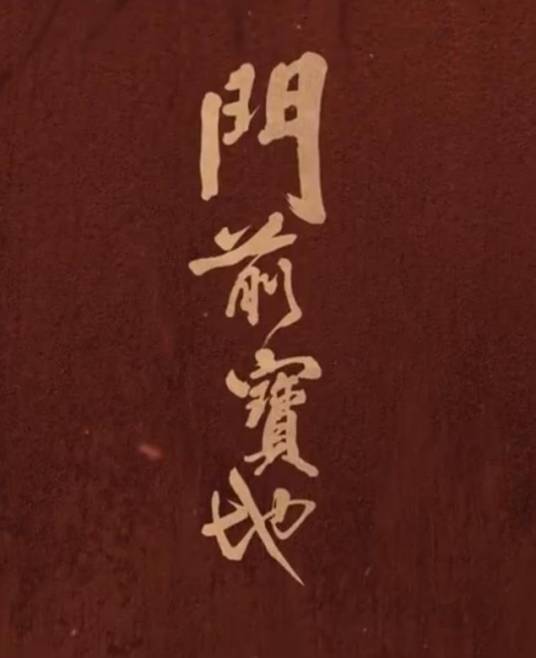 門前寶地